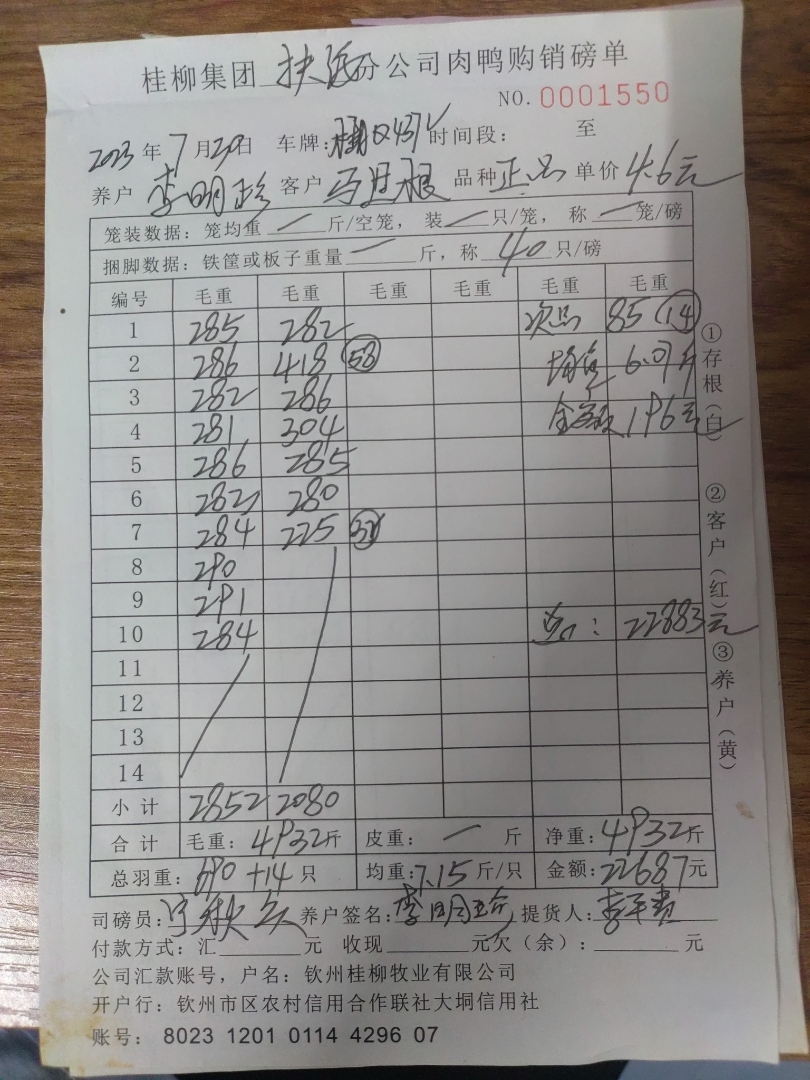 桂柳集团 扶绥分公司肉鸭购销磅单
NO. 0001550
2023年7月20日 车牌: 时间段: 至
养户 李明珍 客户 品种 正品 单价 4.6元
笼装数据: 笼均重 一 斤/空笼, 装 一 只/笼, 称 一 笼/磅
捆脚数据: 铁筐或板子重量 一 斤, 称 40 只/磅
编号 毛重 毛重 毛重 毛重 毛重 毛重
1 285 282 次品 85 (14)
2 286 418 (58) 均重 6.07斤
3 282 286 金额 196元
4 281 304
5 286 285
6 282 280
7 284 225 (32)
8 290
9 291
10 284 22883元
11
12
13
14
小计 2852 2080
合计 毛重: 4932斤 皮重: 一 斤 净重: 4932斤
总羽重: 690+14 只 均重: 7.15斤/只 金额: 22687元
司磅员: 养户签名: 李明珍 提货人:
付款方式: 汇 元 收现 元欠(余): 元
公司汇款账号, 户名: 钦州桂柳牧业有限公司
开户行: 钦州市区农村信用合作联社大垌信用社
账号: 8023 1201 0114 4296 07
①存根(白) ②客户(红) ③养户(黄)